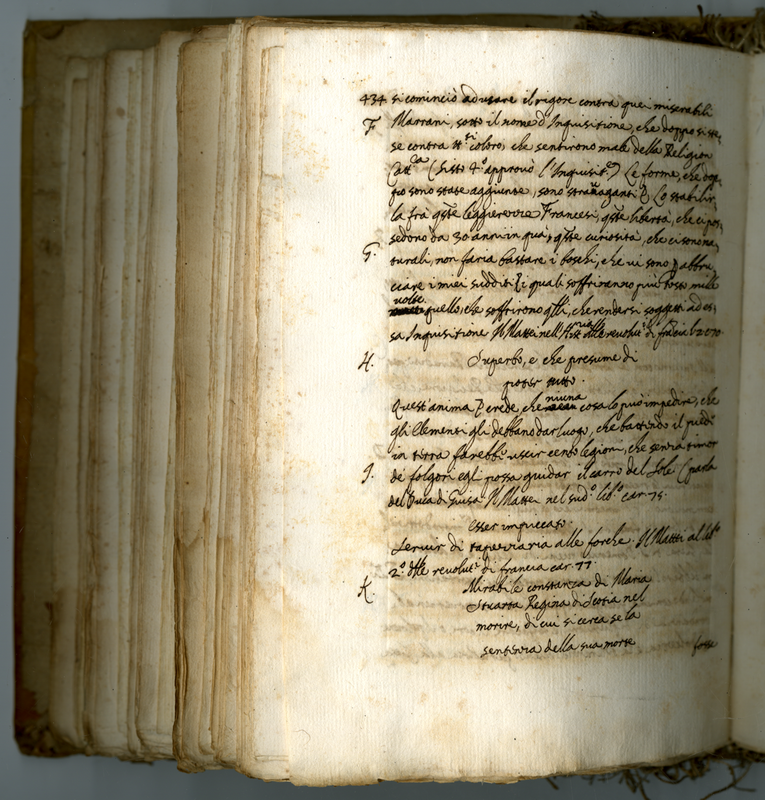 434 si cominciò ad usare il rigore contra quei miserabili
F. Marrani, sotto il nome d'Inquisitione, che doppo si ste,
se contra tt.i coloro, che sentirono male della Religion
Catt.ca (Sisto 4.o approvò l'Inquisit.e) Le forme, che dop,
po sono state aggiunte, sono stravaganti
la frà q.ste leggierezze Francesi, q.sta libertà, che si pos,
G. sedono da 30 anni in quà, q.ste curiosità, che ci sono na,
turali, non faria bastare i boschi, che vi sono p abbru,
ciare i miei sudditi i quali soffriranno più tosto mille
volte quello, che soffrirono q.lli, che rendersi soggetti ad es,
sa Inquisitione Il Mattei nell' delle revolut. di francia
H. Superbo, e che presume di
poter tutto.
Quest'anima crede, che niuna cosa lo può impedire, che
gli Elementi gli debbano dar luogo, che battendo il piede
in terra farebbe uscir cento legioni, che senza timor
I. de folgori egli possa guidar il carro del Sole (parla
del Duca di Guisa Il Mattei nel sud.o lib.o car. 75.
Esser impiccato.
Servir di tapezzaria alle forche. Il Mattei al lib.o
2.o delle revolut. di francia car. 77.
K. Mirabile constanza di Maria
Stuarta Regina di Scotia nel
morire, di cui si cerca se la
sentenza della sua morte fosse